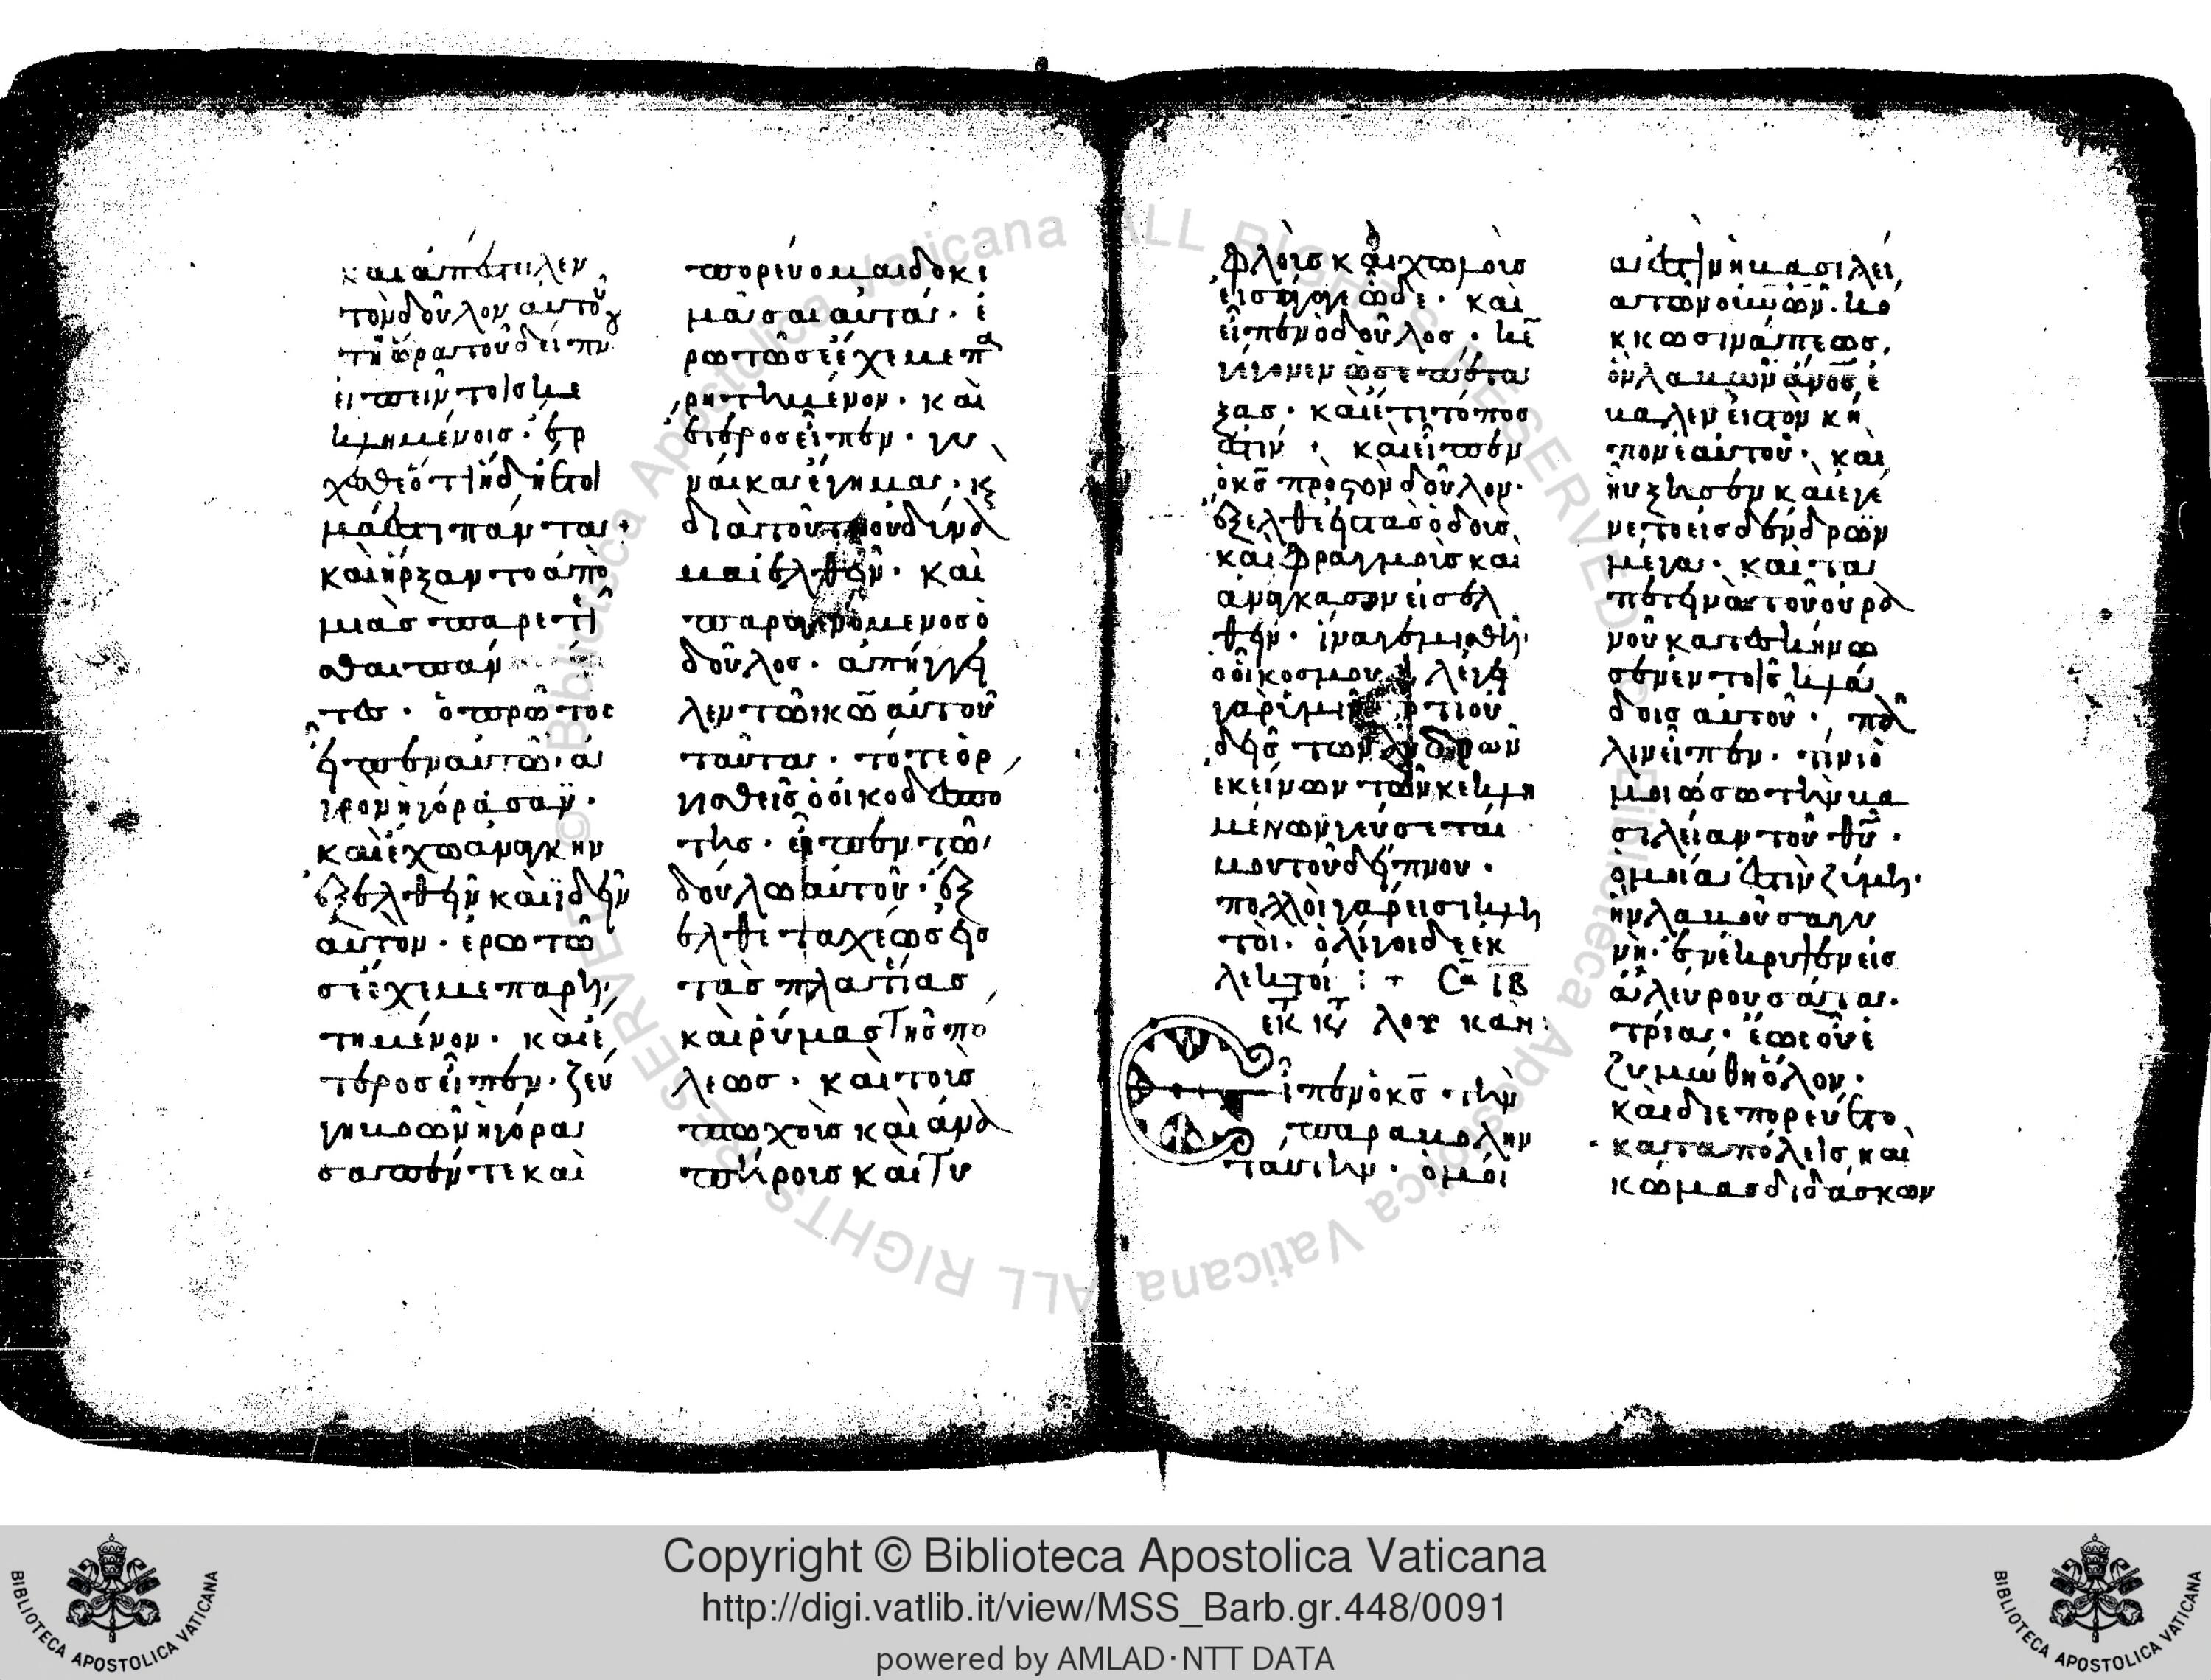 και ἀπέστειλεν
τὸν δοῦλον αὐτοῦ
τῆ ὥρα τοῦ δείπν
εἰπεῖν τοῖς κε
κλημένοις· ἔρ
χεσθε ὅτι ἤδη ἕτοι
μά ἐστι πάντα·
καὶ ἤρξαντο ἀπὸ
μιᾶς παρετῆ
σθαι πάν
τες· ὁ πρῶτος
εἶπεν αὐτῶ· ἀ
γρὸν ἠγόρασαν·
καὶ ἔχω ἀνάγκην
ἐξελθεῖν καὶ ἰδεῖν
αὐτον· ἐρωτῶ
σε ἔχε με παρη
τημένον· καὶ ἕ
τερος εἶπεν· ζεύ
γη βοῶν ἠγόρα
σα πέντε καὶ
πορεύομαι δοκι
μάσαι αὐτά· ἐ
ρωτῶ σε ἔχε με πα
ρητημένον· καὶ
ἕτερος εἶπεν· γυ
ναίκα ἔγημα· κ
διὰ τοῦτο οὐ δύνα
μαι ἐλθεῖν· καὶ
παραγενόμενος ὁ
δοῦλος· ἀπήγγει
λεν τῶ κω αὐτοῦ
ταῦτα· τότε ὀρ
γισθεὶς ὁ οἰκοδεσπο
της· εἶπεν τῶ
δούλω αὐτοῦ· ἔξ
ελθε ταχέως εἰς
τὰς πλατείας
καὶ ρύμας τῆς πό
λεως· και τοὺς
πτωχοὺς καὶ ἀνα
πήρους καὶ τυ
φλοὺς καὶ χωλοὺς
εἰσάγαγε ὧδε· καὶ
εἶπεν ὁ δοῦλος· κε
γέγονεν ὡς ἐπέτα
ξας· καὶ ἔτι τόπος
ἐστίν· καὶ εἶπεν
ὁ κς προς τὸν δοῦλον·
ἔξελθε εἰς τὰς ὁδοὺς
καὶ φραγμοὺς καὶ
ἀνάγκασον εἰσελ
θεῖν· ἵνα γεμισθῆ
ὁ οἶκος μου· λέγω
γὰρ ὑμῖν ὅτι οὐ
δεὶς τῶν ἀνδρῶν
ἐκείνων τῶν κεκλη
μένων γεύσεταί
μου τοῦ δείπνου·
πολλοὶ γάρ εἰσι κλη
τοὶ· ὀλίγοι δὲ ἐκ
λεκτοί : + Σα ΙΒ
ἐκ τ κτ λου καν:
Εἶπεν ὁ κς τὴν
παραβολὴν
ταύτην· ὁμοί
α ἐστὶν ἡ βασιλεί
α τῶν οὐνῶν· κό
κκω σινάπεως,
ὃν λαβὼν ἀνος ἔ
βαλεν εἰς τὸν κῆ
πον ἑαυτοῦ· και
ηὔξησεν και ἐγέ
νετο εἰς δένδρον
μέγα· καὶ τὰ
πετεινὰ τοῦ οὐρα
νοῦ κατεσκήνω
σεν ἐν τοῖς κλά
δοις αὐτοῦ· πά
λιν εἶπεν· τίνι ὁ
μοιώσω τὴν βα
σιλείαν τοῦ θυ·
ὁμοία ἐστὶν ζύμη·
ἣν λαβοῦσα γυ
νὴ· ἐνέκρυψεν εἰς
ἀλεύρου σάτα
τρία· ἕως οὗ ἐ
ζυμώθη ὅλον·
καὶ διεπορεύετο
κατα πόλεις και
κώμας διδάσκων
Copyright © Biblioteca Apostolica Vaticana
http://digi.vatlib.it/view/MSS_Barb.gr.448/0091
powered by AMLAD·NTT DATA
BIBLIOTECA APOSTOLICA VATICANA
BIBLIOTECA APOSTOLICA VATICANA
© Biblioteca Apostolica Vaticana ALL RIGHTS RESERVED